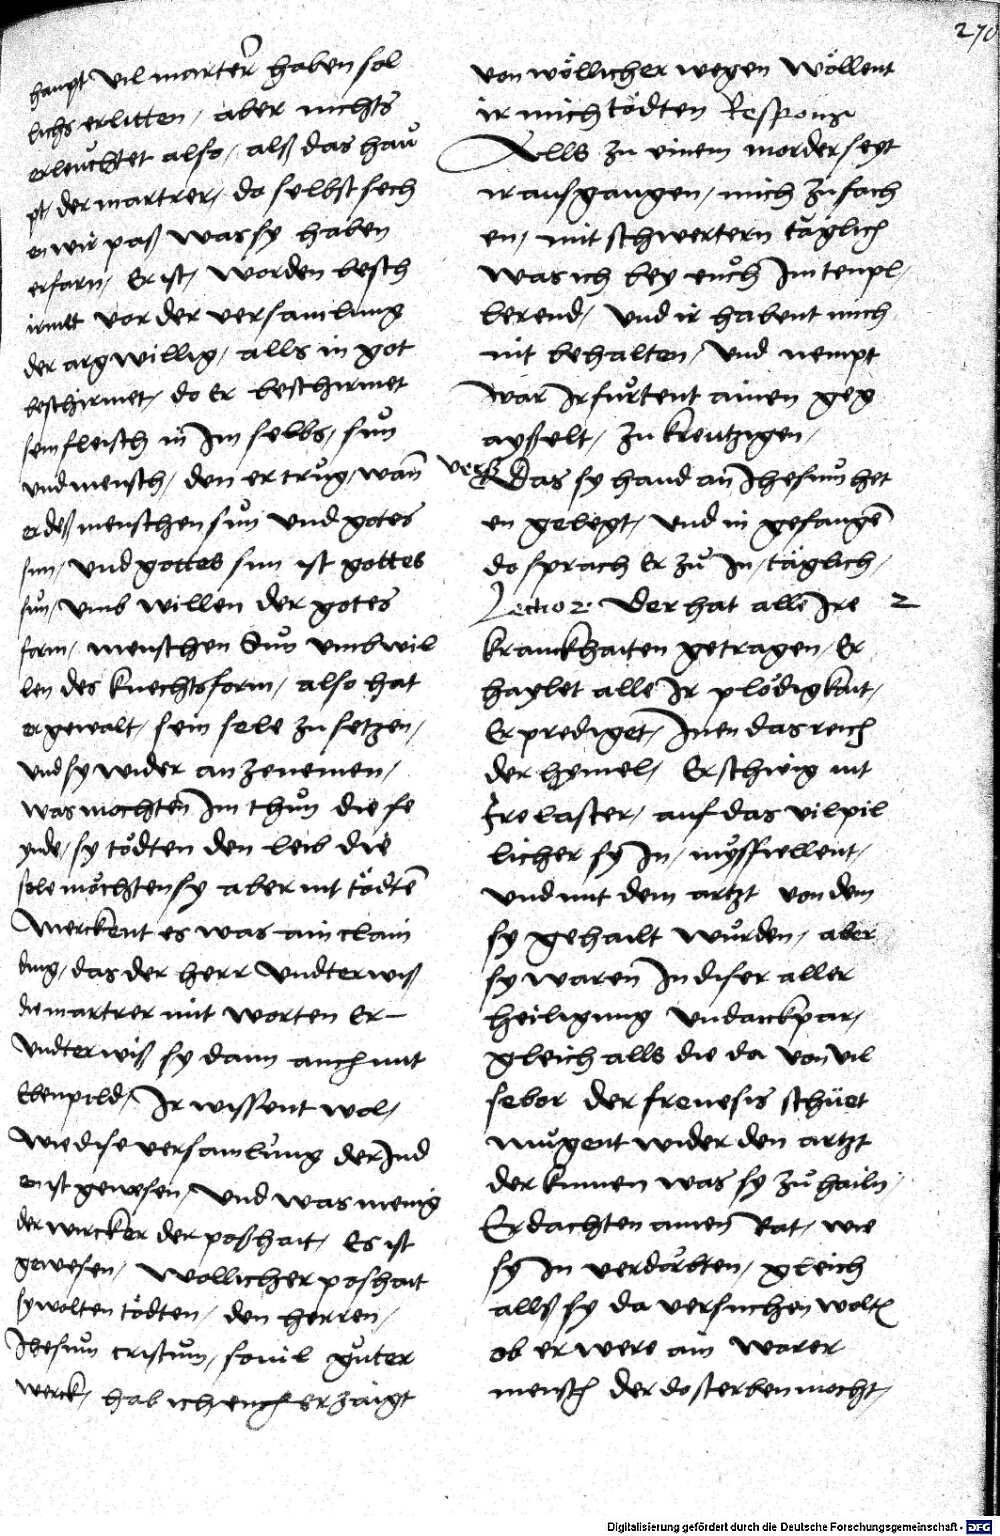 270
haupt vil martere͂r haben sol
lichs erlitten, aber nichts
erleuchtet also, alß das hau
pt, der martrer, do selbst sech
en wir paß was sy haben
erfarn, Er ist, worden besch
irmet vor der versamlung
der argwillig, alls in got
beschirmet, do Er beschirmet
sein fleisch in Im selbs, sun
und mensch, den er trůg, wan͂
er deß menschen sůn und gotes
sun, und gottes sun ist gottes
sůn, umb willen der gotes
form, menschen Sůn umb wil
len des knechts form, also hat
er gewalt, sein sele zu setzen,
und sy wider an zenemen,
was mochten Im thůn die fe
ynde, sy tödten den leib die
sele möchten sy aber nit tödten͂
Merckent es was ain clain
ding, das der herr undterwiß
die martrer mit worten Er
undterwiß sy dann auch mit
Ebenpild, Ir wissent wol,
wie dise versamlung der Jud
en ist gewesen, und was menig
der wircker der poßhait, Es ist
gewesen, wollicher poshait
sy wolten tödten, den herren,
Jhesum cristum, souil gůter
werck, hab ich euch erzaigt
von wöllicher wegen wöllent
ir mich tödten Respons
Alls zu einem morder seyt
ir ausgangen, mich zu fach
en, mit schwertern täglich
was ich bey eůch Im tenpl,
berend, und ir habent mich
nit behalten, und nempt
war Ir fůrtent ainen geg
ayßelt, zu kreutzigen,
vers Das sy hand an͂ Jhesum het
en gelegt, und in gefangen͂
do sprach Er zů In, täglich,
Lectio 2. Der hat alle Ire 2
kranckhaiten getragen, Er
haylet alle Ir plödigkait,
Er prediget, Inen das reich
der hymel, Er schweig nit
Ire laster, auf das vil pil
licher sy In, mysfiellent,
und mit dem artzt von dem
sy gehailt wůrden, aber
sy waren In diser aller
heiligung undanckpar,
gleich alls die da von vil
febor der frenesis schüet
mugent wider den artzt
der kumen was sy zů hailn,
Erdachten ainen͂ Rat, wie
sy In verdörbten, gleich
allß sy da versuchen wolt͂
ob er were ain warer
mensch der do sterben mocht,
Digitalisierung gefördert durch die Deutsche Forschungsgemeinschaft - DFG